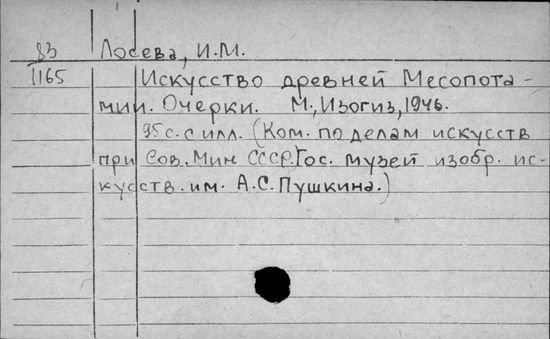 83 Лосева, И.М.
1165 Искусство древней Месопота-
мии. Очерки. М., Изогиз, 1946.
95 с. с илл. (Ком. по делам искусств
при Сов. Мин. СССР. Гос. музей изобр. ис-
кусств. им. А.С. Пушкина.)